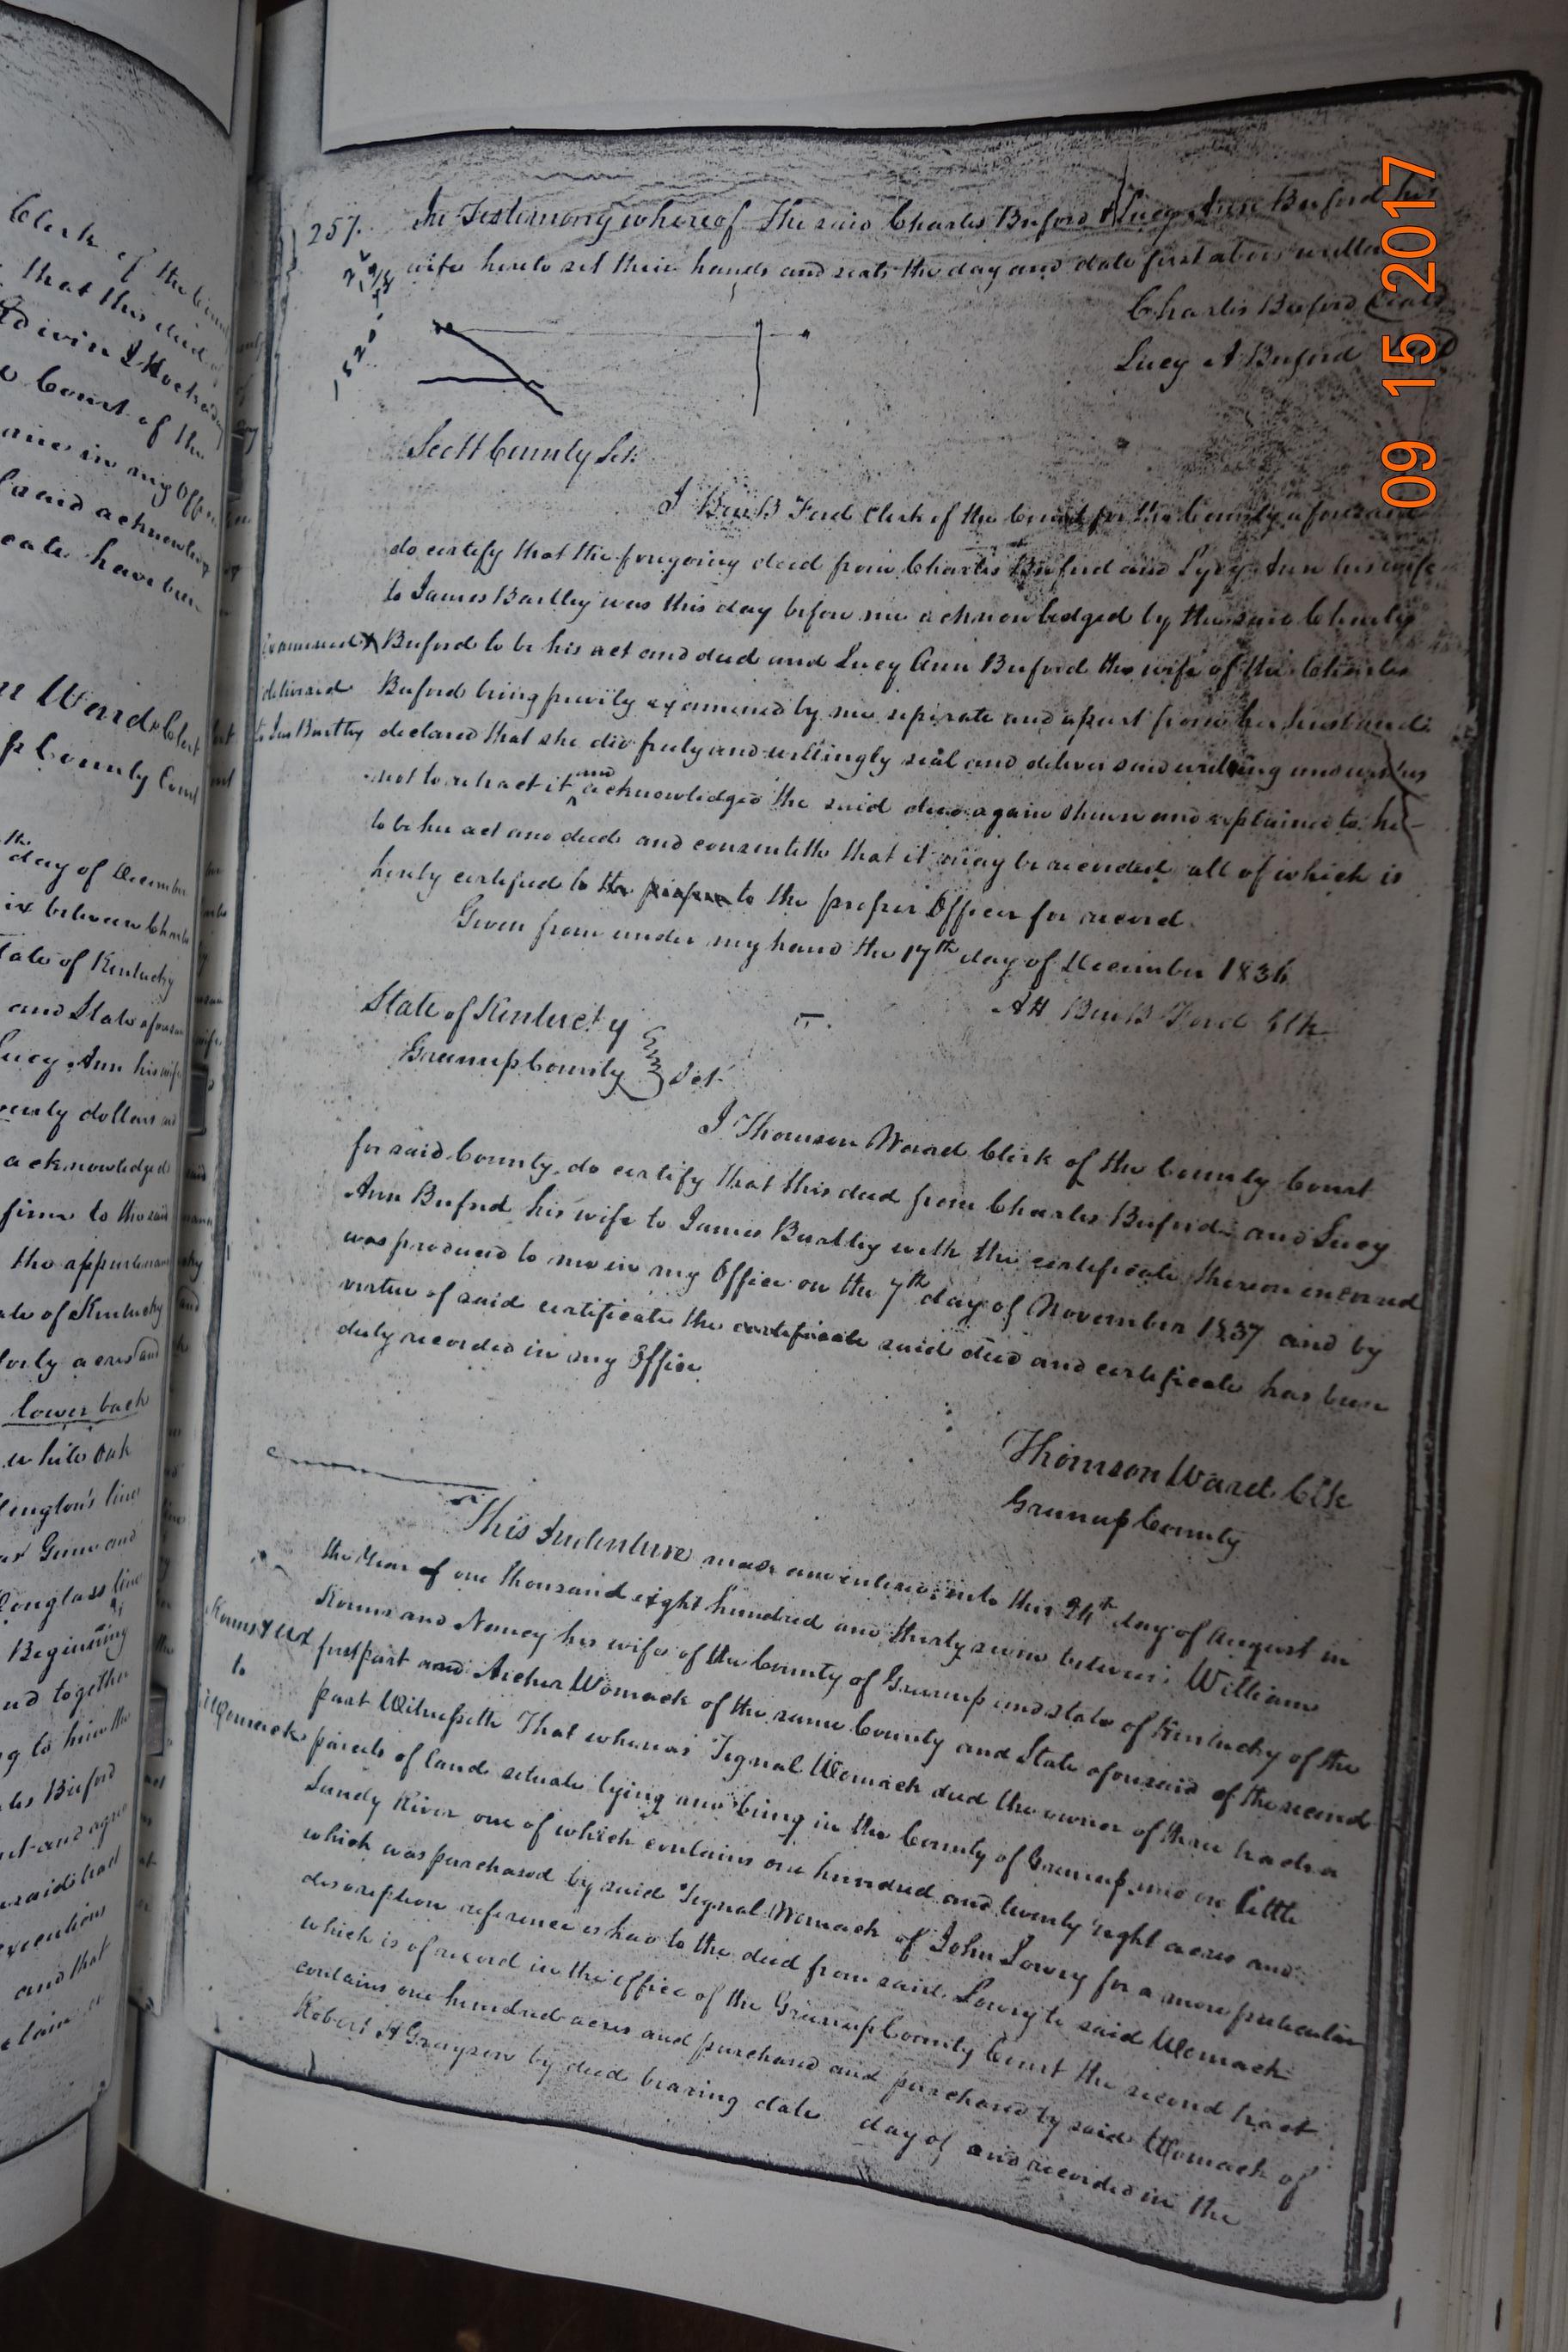 Clerk of the
that this deed of
Edwin
Court of the
came in my Office
and acknowledg
cate have been
Ward Clerk
County Court
th day of December
between Charles
State of Kentucky
and State aforesaid
Lucy Ann his wife
dollars
acknowledged
firm to the said
the appurtenan
State of Kentucky
forty acres and
lower back
white oak
line
and
Douglass line
Beginning
and together
to him the
Charles Buford
and agree
said
executions
and that
claim
257.
In Testimony whereof the said Charles Buford & Lucy Ann Buford his
wife hereto set their hands and seals the day and date first above written
Charles Buford Seal
Lucy A Buford
Scott County Sct.
I Ben B Ford Clerk of the Court for the County aforesaid
do certify that the foregoing deed from Charles Buford and Lucy Ann his wife
to James Bartley was this day before me acknowledged by the said Charles
examined & Buford to be his act and deed and Lucy Ann Buford the wife of the Charles
delivered Buford being privily examined by me seperate and apart from her husband
to Jas Bartley declared that she did freely and willingly seal and deliver said writing and wishes
not to retract it and acknowledged the said deed again shewn and explained to her
to be her act and deed and consenteth that it may be recorded all of which is
hereby certified to the proper to the proper Officer for record.
Given from under my hand the 17th day of December 1836
Att Ben B Ford Clk
State of Kentucky
Greenup County Sct
I Thomson Ward Clerk of the County Court
for said County, do certify that this deed from Charles Buford and Lucy
Ann Buford his wife to James Bartley with the certificate thereon endorsed
was produced to me in my Office on the 7th day of November 1837 and by
virtue of said certificate the certificate said deed and certificate has been
duly recorded in my Office
Thomson Ward Clk
Greenup County
This Indenture made and entered into this 24th day of August in
the Year of one thousand eight hundred and thirty seven between William
Kouns and Nancy his wife of the County of Greenup and state of Kentucky of the
Kouns & Ux first part and Archer Womack of the same County and State aforesaid of the second
to part Witnesseth That whereas Tignal Womack died the owner of three tracts or
Womack parcels of land situate lying and being in the County of Greenup and on little
Sandy River one of which contains one hundred and twenty eight acres and
which was purchased by said Tignal Womack of John Lowry for a more perticular
description reference is had to the deed from said Lowry to said Womack
which is of record in the office of the Greenup County Court the second tract
contains one hundred acres and purchased and purchased by said Womack of
Robert H Grayson by deed bearing date day of and recorded in the
09 15 2017